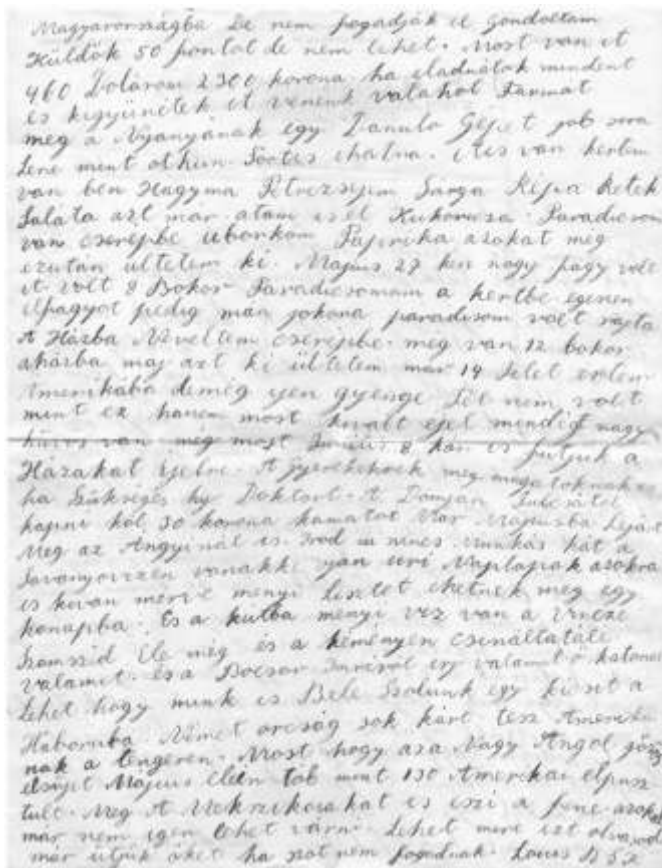 Magyarországba De nem fogadják el Gondoltam
Küldök 50 fontot de nem lehet. Most van it
460 Dolárom 2300 korona ha eladnátok mindent
és kigyünétek it venénk valahol Farmat
meg a Nyanyának egy Gépet job sora
lene mint othun. van kertem
van ben Hagyma Petrezsijem Sárga Répa Retek
Saláta azt már atam is el Kukorica. Paradicsom
van cserépbe uborkám Paprika azokat meg
ezután ültetem ki. Május 27 kén nagy fagy vólt
it vólt 8 Bokor Paradicsomom a kertbe egészen
elfagyot pedig mán jókora paradisom vólt rajta
A Házba Neveltem cserépbe meg van 12 bokor
aházba maj azt ki ültetem már 14 Telet értem
Amerikába de még ijen gyenge Tél nem vólt
mint ez hanem most kivált éjel mindig nagy
hűvös van még most Június 8 kán is fűtjük a
Házakat éjelre. A gyerekeknek meg magatoknak
ha Szükséges híj Doktort. A Domján
kapni köl 30 korona kamatot Már Májusba Lejárt
Meg az Angyinál is. Irod nincs munkás hát a
Savanyóvizen vanakki ijan úri Naplopók azokra
is kiván mérve menyi Lisztet ehetnek meg egy
hónapba. És a kutba menyi viz van a Vincze
Szomszéd Éle még és a kéményen csináltatále
valamit. És a Bocsor írj valamit ő katona
Lehet hogy mink is Bele Szólunk egy kicsit a
Háboruba Német ország sok kárt tesz Ameriká
nak a tengeren. Most hogy aza Nagy Angol
elsüjet Május elein töb mint 130 Amerikai elpusz
tult. Meg A Mekszikóiakat is eszi a fene azokat
már nem igen lehet várni. Lehet mire ezt olvasod
már ütjük őket ha szót nem fogadnak.